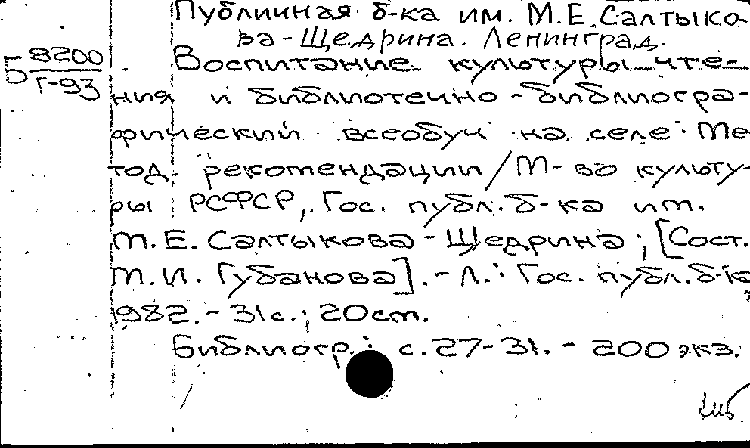 Публичная б-ка им. М.Е.Салтыко-
ва-Щедрина. Ленинград.
Б 8200
Г-93
Воспитание культуры чте-
ния и библиотечно-библиогра-
фический всеобуч на селе: Ме
тод. рекомендации/М-во культу-
ры РСФСР, Гос. публ. б-ка им.
М.Е. Салтыкова-Щедрина; [Сост.
М.И. Губанова]. - Л.: Гос. публ. б-ка,
1982. - 31с.; 20см.
Библиогр.: с.27-31. - 200 экз.